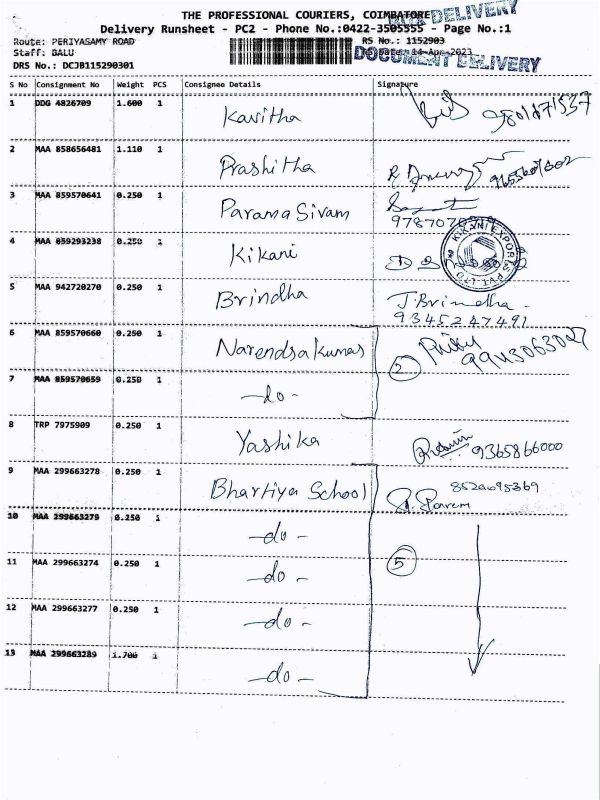 THE PROFESSIONAL COURIERS, COIMBATORE
DATA DELIVERY
Delivery Runsheet - PC2 - Phone No.:0422-3505555 - Page No.:1
Route: PERIYASAMY ROAD
RS No.: 1152903
Staff: BALU
RS Date: 14-Apr-2023
DOCUMENT DELIVERY
DRS No.: DCJB115290301
S No Consignment No Weight PCS Consignee Details Signature
1 DDG 4826709 1.600 1 Kavitha
2 MAA 858656481 1.110 1 Prashitha
3 MAA 859570641 0.250 1 Parama Sivam
4 MAA 859293238 0.250 1 Kikani
KIKANI EXPORTS PVT. LTD
5 MAA 942720270 0.250 1 Brindha J. Brindha
9345247491
6 MAA 859570660 0.250 1 Narendrakumar 2 9943063027
7 MAA 859570659 0.250 1 -do-
8 TRP 7975909 0.250 1 Yashika 9365866000
9 MAA 299663278 0.250 1 Bhartiya School
10 MAA 299663279 0.250 1 -do-
11 MAA 299663274 0.250 1 -do- 5
12 MAA 299663277 0.250 1 -do-
13 MAA 299663289 1.700 1 -do-